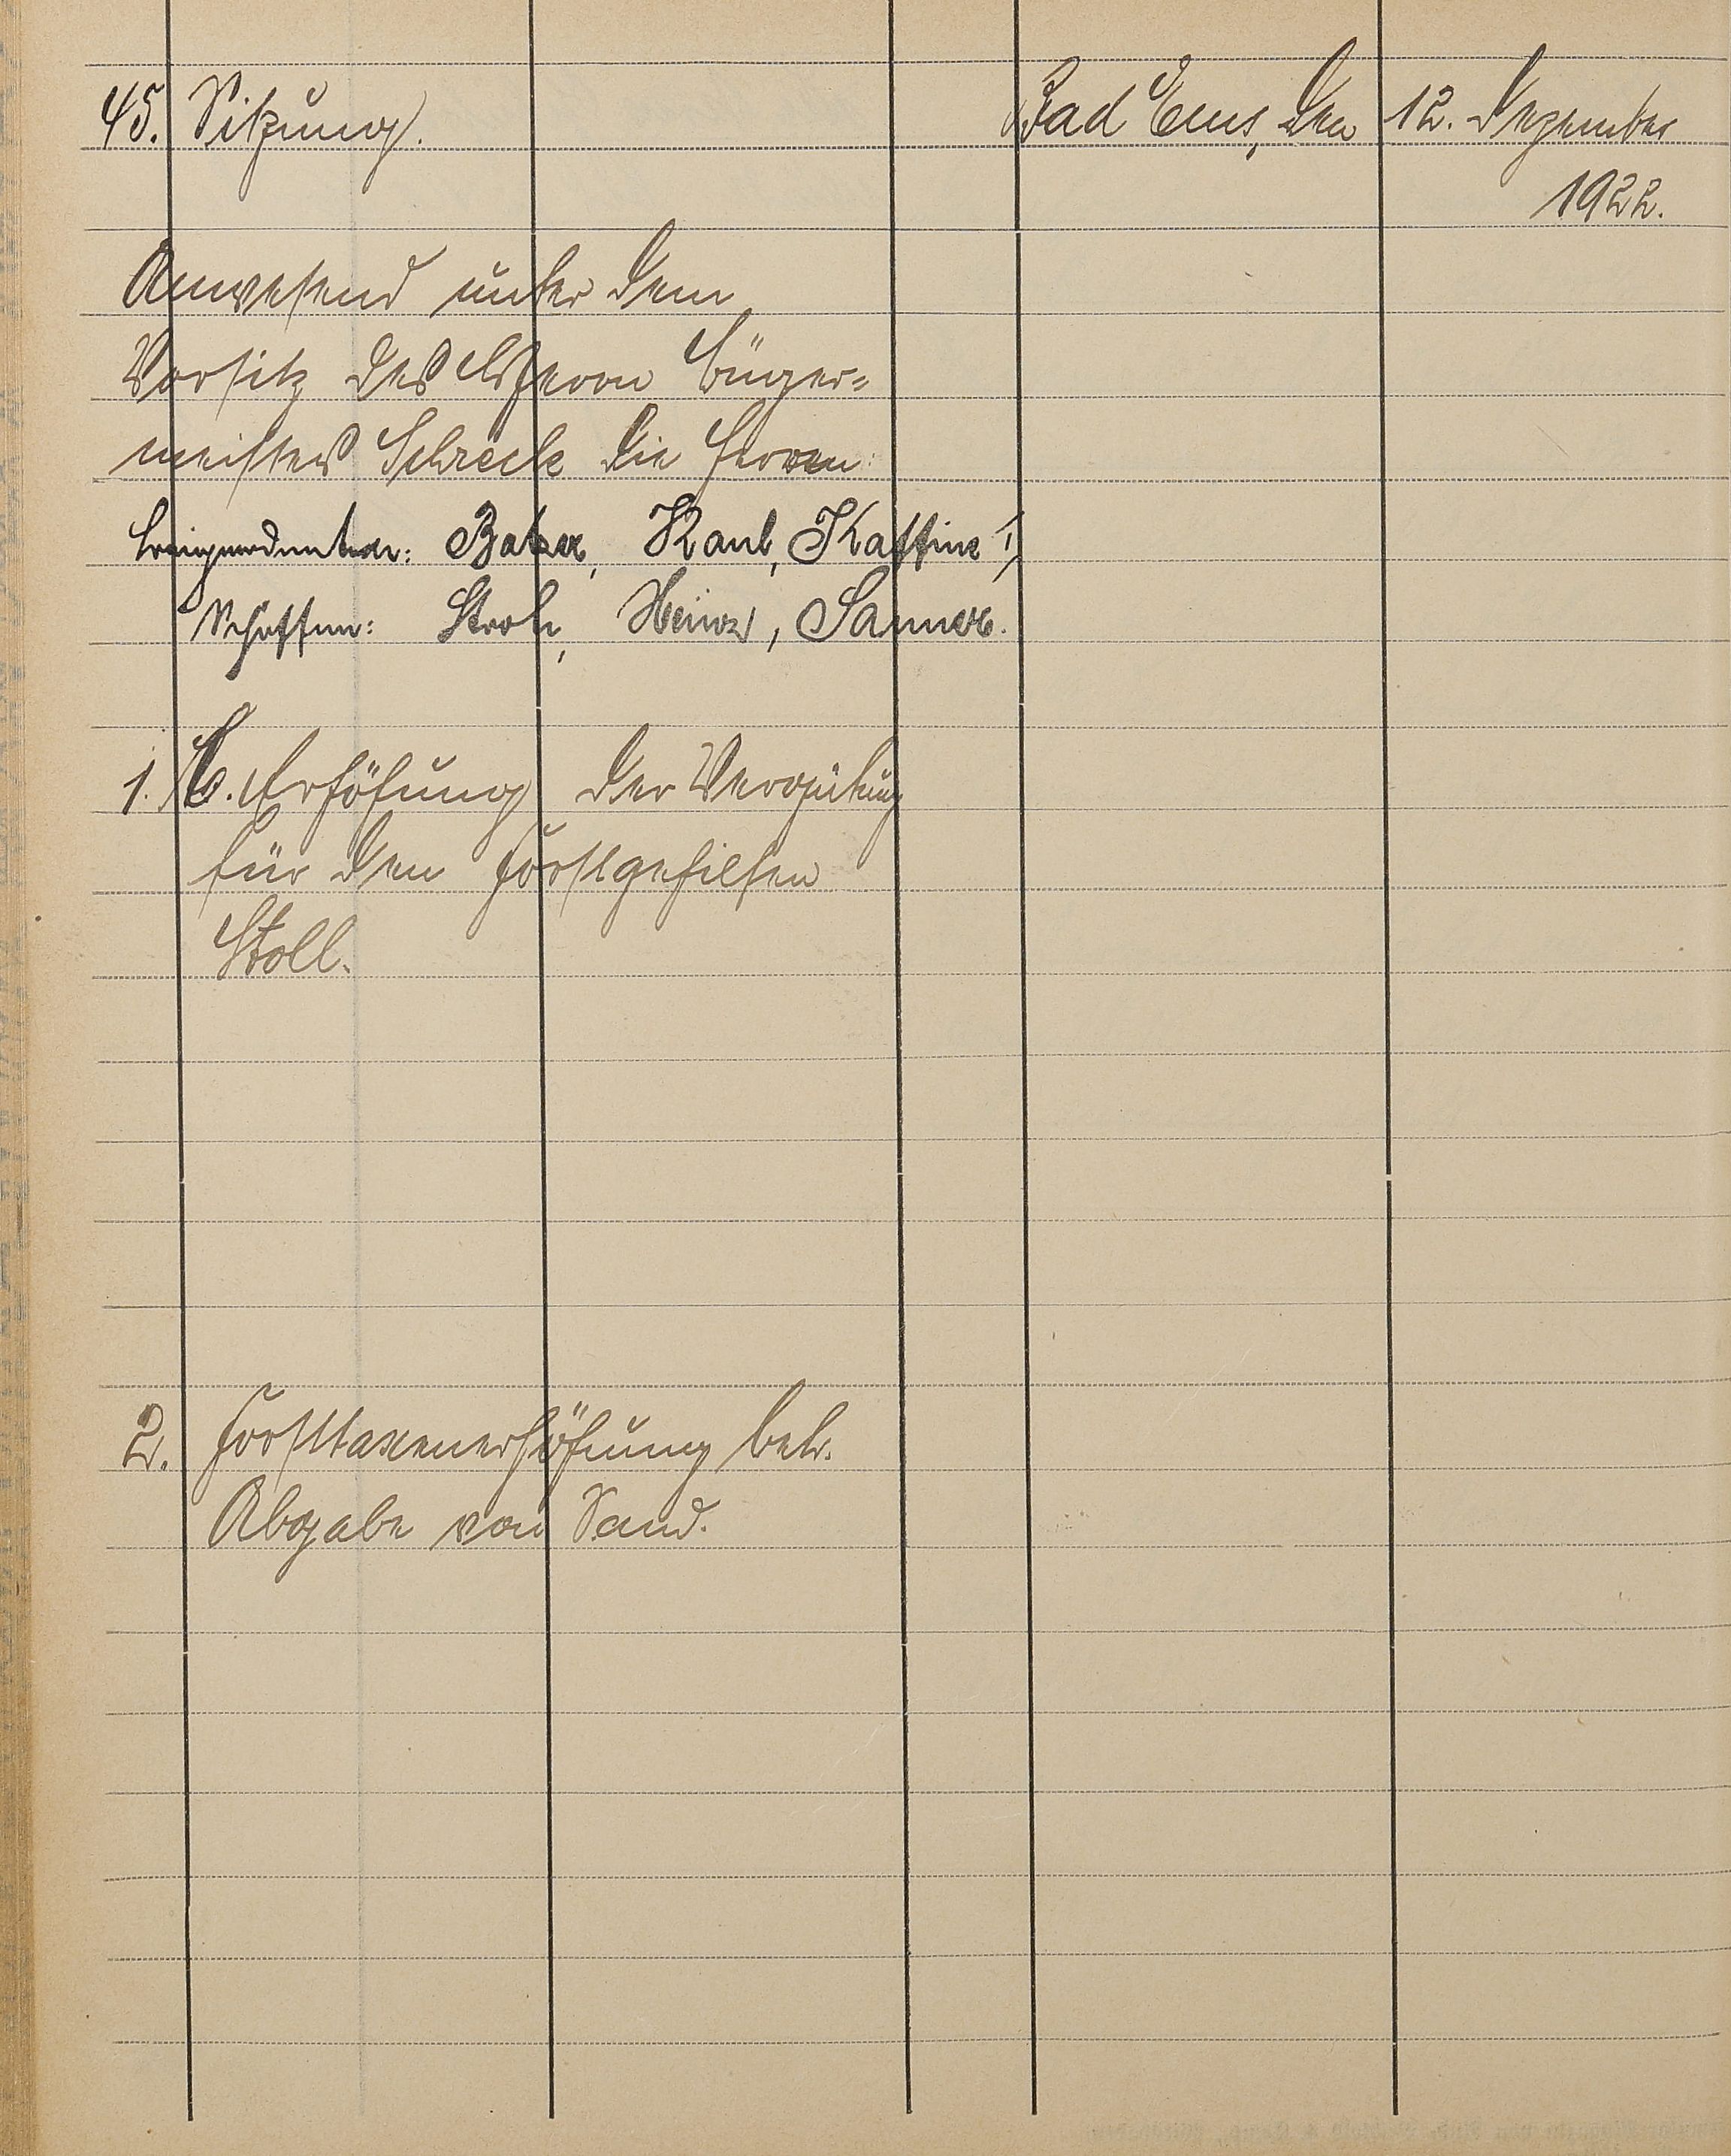 45. Sitzung.
Bad Ems, den 12. Dezember
1922.
Anwesend unter dem
Vorsitz des Herrn Bürger=
meisters Schreck die Herren:
Beigeordneter: Balzer, Kaul, Kaffine I,
Schöffen: Stroh, Heinz, Sanner.
1. Erhöhung der Vergütung
für den Forstgehilfen
Stoll.
2. Forsttaxenerhöhung betr.
Abgabe von Sand.